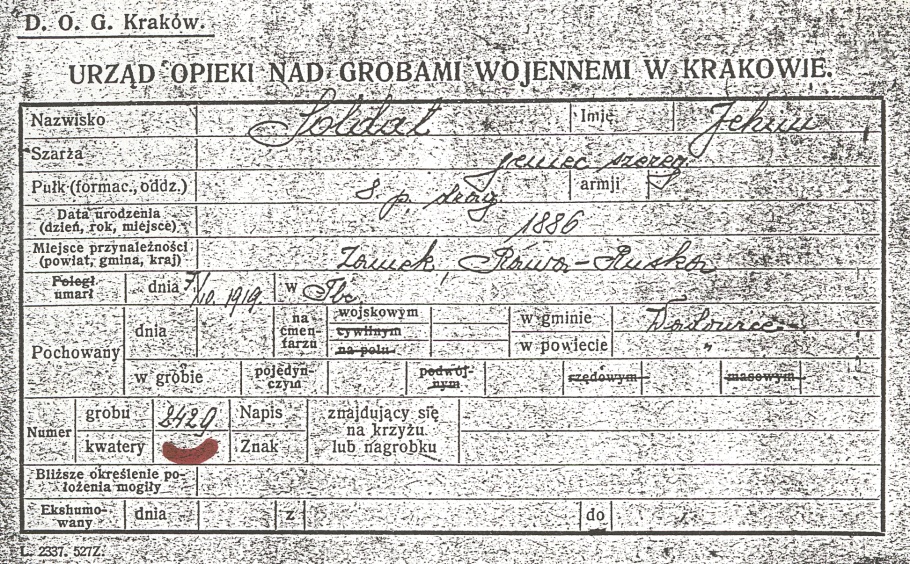 D. O. G. Kraków.
URZĄD OPIEKI NAD GROBAMI WOJENNEMI W KRAKOWIE.
Nazwisko Soldat Imię
Szarża jeniec szereg.
Pułk (formac., oddz.) 8. p. armji
Data urodzenia (dzień, rok, miejsce) 1886
Miejsce przynależności (powiat, gmina, kraj) Zamek, Rawa-Ruska
Poległ umarł dnia 7/10. 1919. w Tbc
Pochowany dnia na cmentarzu wojskowym cywilnym na polu w gminie
w powiecie "
w grobie pojedynczym podwójnym rzędowym masowym
Numer grobu 2429 Napis znajdujący się na krzyżu lub nagrobku
kwatery Znak
Bliższe określenie położenia mogiły
Ekshumowany dnia z do
L. 2337. 527Z.